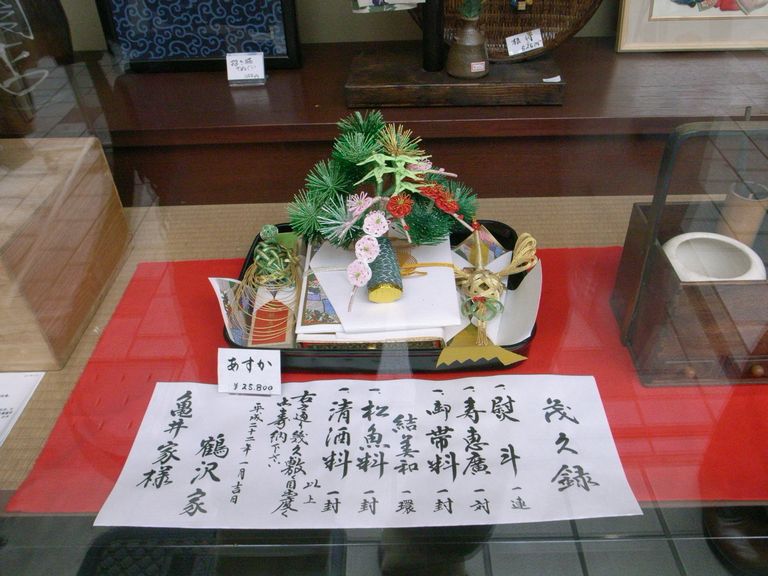 茂久録
一 熨斗 一連
一 寿恵廣 一対
一 御帯料 一封
結美和 一環
一 松魚料 一封
一 清酒料 一封
以上
右之通り幾久敷目出度く
平成二十二年一月吉日
鶴沢家
亀井家様
あすか
¥25,800